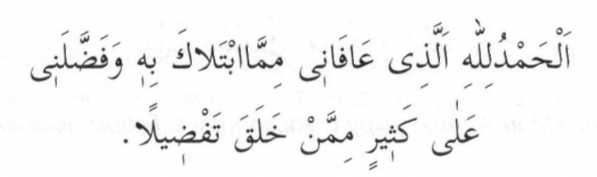 اَلْحَمْدُلِلّٰهِ اَلَّذِى عَافَانٖى مِمَّاابْتَلَاكَ بِهٖ وَفَضَّلَنٖى
عَلٰى كَثٖيرٍ مِمَّنْ خَلَقَ تَفْضٖيلًا.